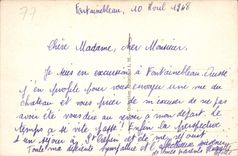 77
Fontainebleau, 10 Avril 1948
Chère Madame, cher Monsieur
Je suis en excursion à Fontainebleau. Aussi
j'en profite pour vous envoyer une vue du
château et vous prier de m'excuser de ne pas
avoir été vous dire au revoir à mon départ. Le
temps a si vite passé ! Enfin la perspective
d'un séjour au et de me
ma sympathie et